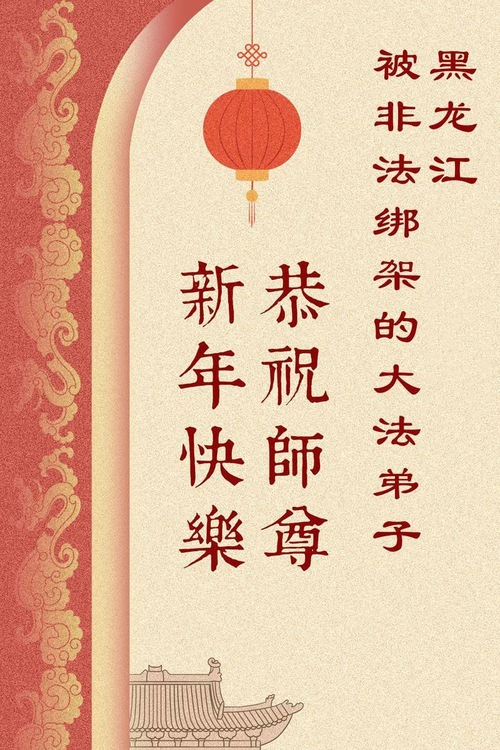 黑龙江
被非法绑架的大法弟子
恭祝師尊
新年快樂